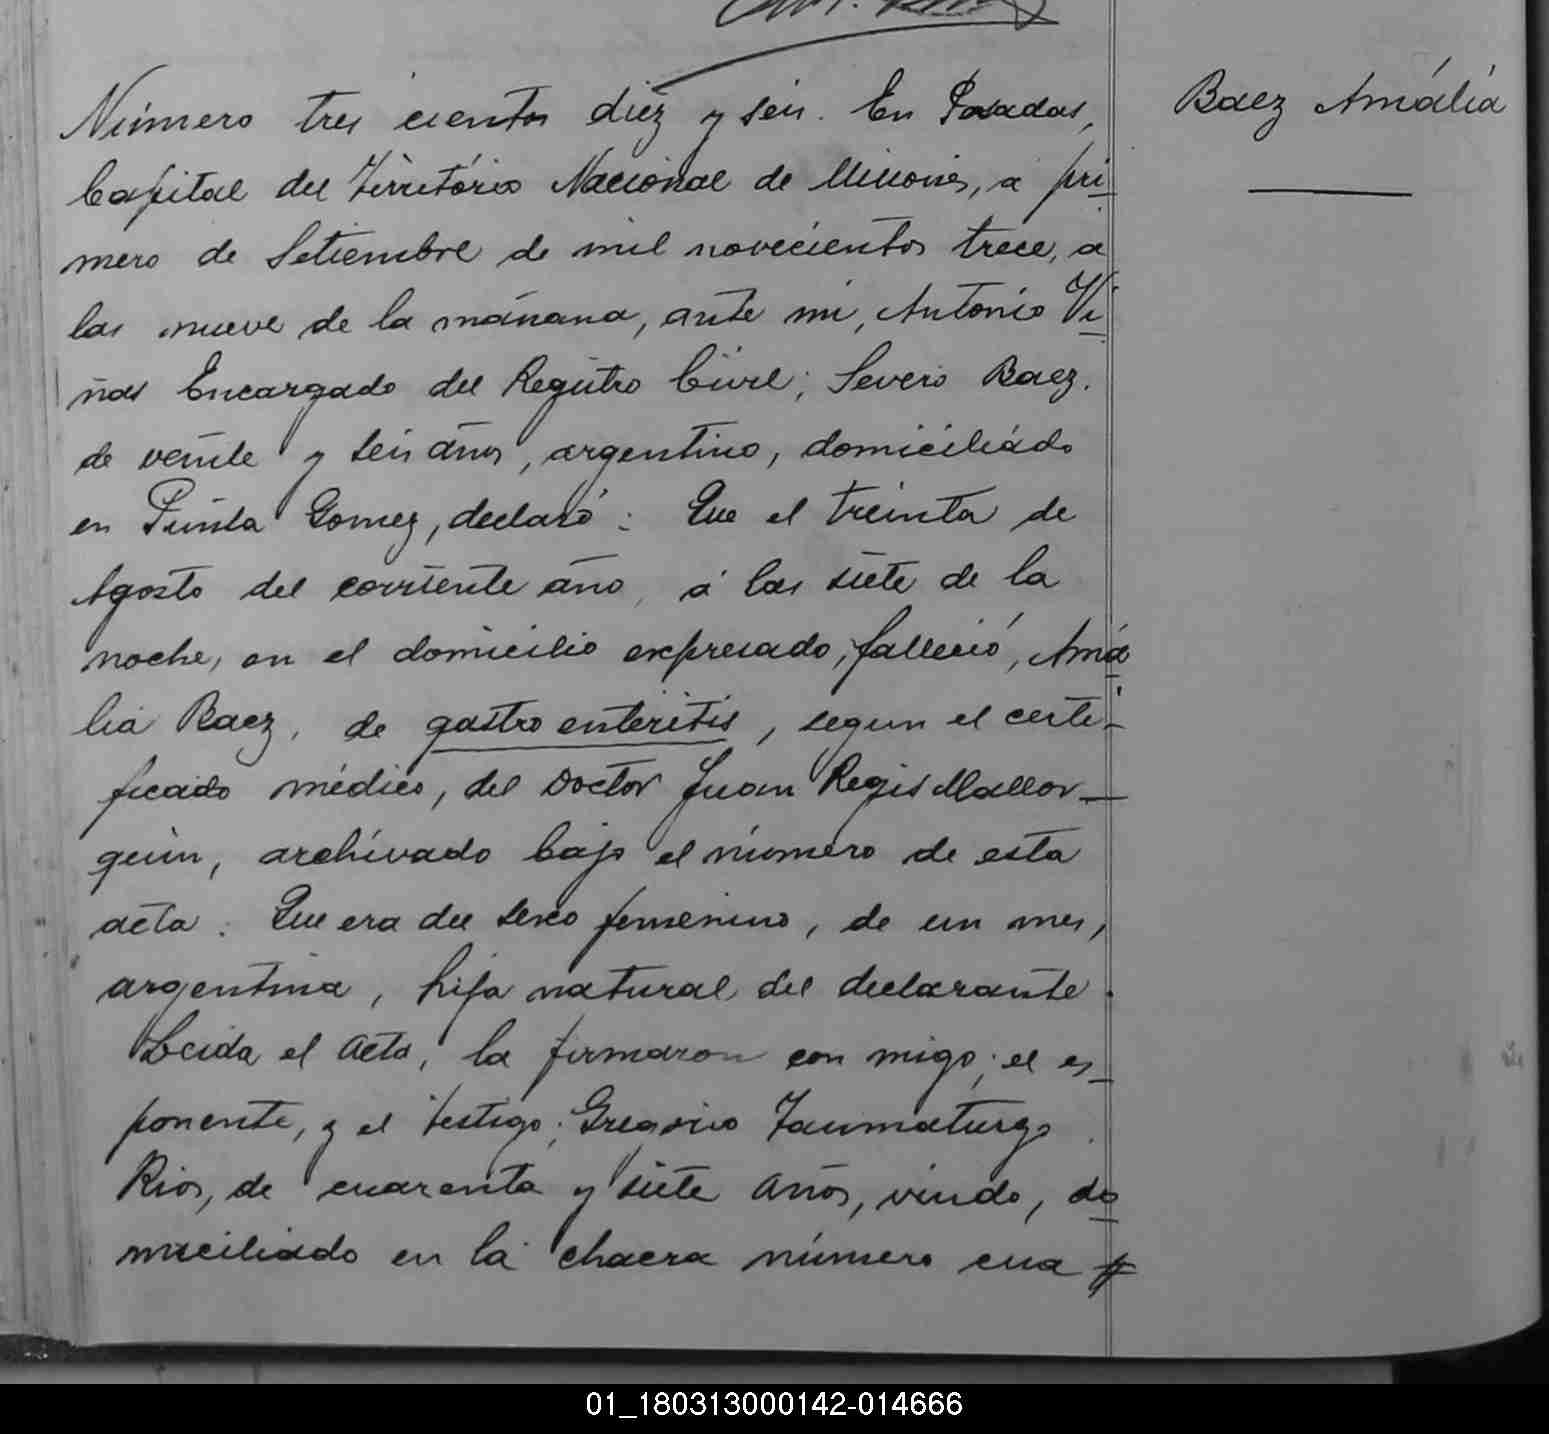 Número tres cientos diez y seis. En Posadas,
Baez Amália
Capital del Território Nacional de Misiones, a pri-
mero de Setiembre de mil novecientos trece, a
las nueve de la mañana, ante mi, Antonio Vi-
ñas Encargado del Registro Civil; Severo Baez.
de veinte y seis años, argentino, domiciliado
en Punta Gomez, declaró: Que el treinta de
Agosto del corriente año, á las siete de la
noche, en el domicilio expresado, falleció, Amá-
lia Baez, de gastro enteritis, segun el certi-
ficado médico, del Doctor Juan Regis Mallor-
quin, archivado bajo el número de esta
acta. Que era del sexo femenino, de un mes,
argentina, hija natural del declarante.
Leida el acta, la firmaron con migo; el es-
ponente, y el testigo; Gregorio Taumaturgo
Rios, de cuarenta y siete años, viudo, do-
miciliado en la chacra número cua #
01_180313000142-014666